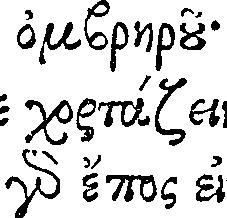 ὀμβρηροῦ·
χορτάζει
γὰρ ἔπος εἰ